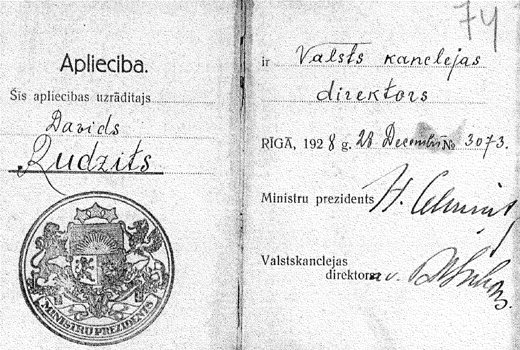 Apliecība.
Šīs apliecības uzrādītajs
Davids
Rudzits
MINISTRU PREZIDENTS
74
ir Valsts kanclejas
direktors
RĪGĀ, 1928 g. 28 Decembrī № 3073.
Ministru prezidents
Valstskanclejas
direktora v.